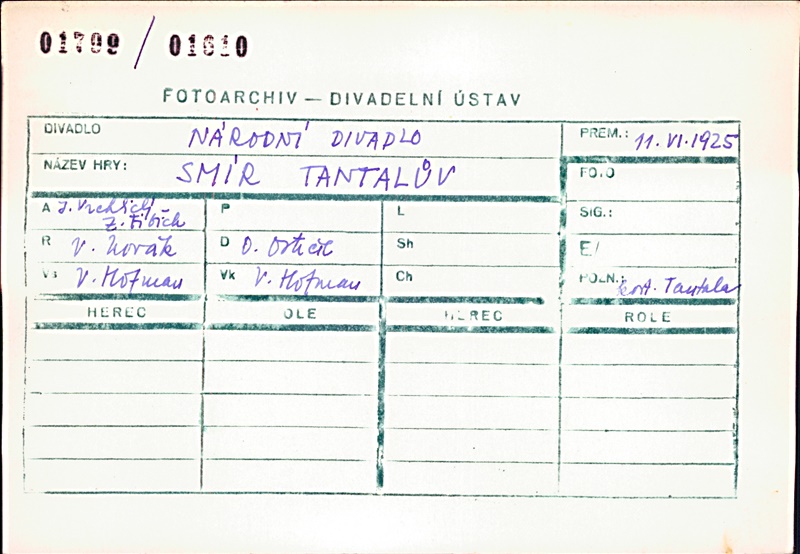 01799 / 01810
FOTOARCHIV — DIVADELNÍ ÚSTAV
DIVADLO NÁRODNÍ DIVADLO PREM.: 11. VI. 1925
NÁZEV HRY: SMÍR TANTALŮV FOTO
A J. Vrchlický P L SIG.:
Z. Fibich
R V. Novák D O. Ostrčil Sh E/
Vs V. Hofman Vk V. Hofman Ch POZN.: kost. Tantala
HEREC OLE HEREC ROLE